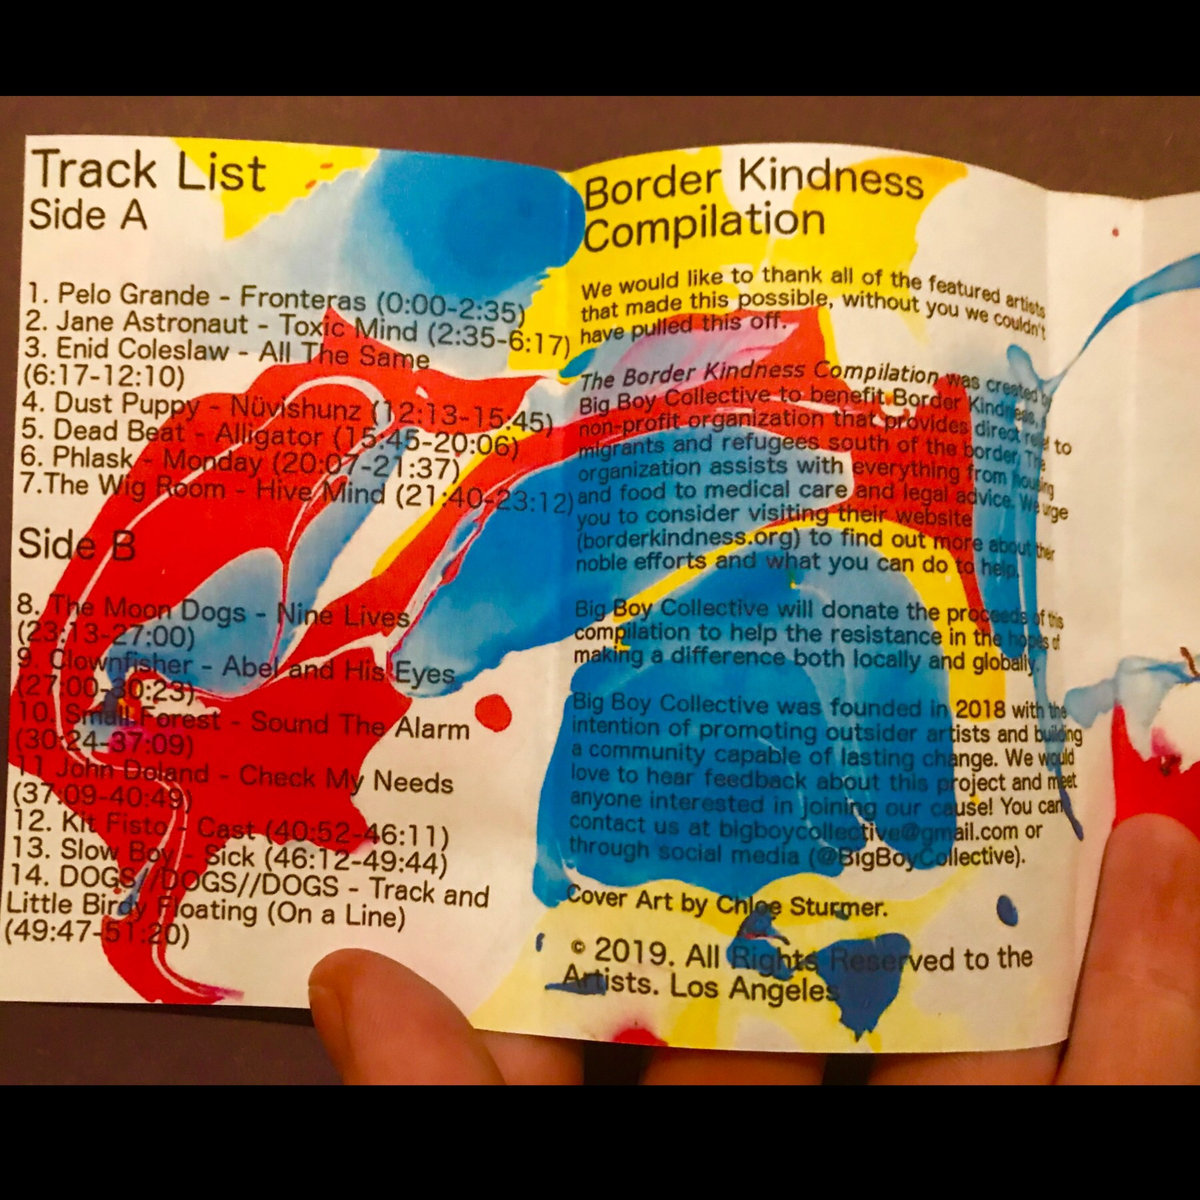 Track List
Side A
1. Pelo Grande - Fronteras (0:00-2:35)
2. Jane Astronaut - Toxic Mind (2:35-6:17)
3. Enid Coleslaw - All The Same
(6:17-12:10)
4. Dust Puppy - Nüvishunz (12:13-15:45)
5. Dead Beat - Alligator (15:45-20:06)
6. Phlask - Monday (20:07-21:37)
7.The Wig Room - Hive Mind (21:40-23:12)
Side B
8. The Moon Dogs - Nine Lives
(23:13-27:00)
9. Clownfisher - Abel and His Eyes
(27:00-30:23)
10. Small Forest - Sound The Alarm
(30:24-37:09)
11 John Doland - Check My Needs
(37:09-40:49)
12. Kit Fisto - Cast (40:52-46:11)
13. Slow Boy - Sick (46:12-49:44)
14. DOGS//DOGS//DOGS - Track and
Little Birdy Floating (On a Line)
(49:47-51:20)
Border Kindness
Compilation
We would like to thank all of the featured artists
that made this possible, without you we couldn't
have pulled this off.
The Border Kindness Compilation was created by
Big Boy Collective to benefit Border Kindness, a
non-profit organization that provides direct relief to
migrants and refugees south of the border. The
organization assists with everything from housing
and food to medical care and legal advice. We urge
you to consider visiting their website
(borderkindness.org) to find out more about their
noble efforts and what you can do to help.
Big Boy Collective will donate the proceeds of this
compilation to help the resistance in the hopes of
making a difference both locally and globally.
Big Boy Collective was founded in 2018 with the
intention of promoting outsider artists and building
a community capable of lasting change. We would
love to hear feedback about this project and meet
anyone interested in joining our cause! You can
contact us at bigboycollective@gmail.com or
through social media (@BigBoyCollective).
Cover Art by Chloe Sturmer.
© 2019. All Rights Reserved to the
Artists. Los Angeles